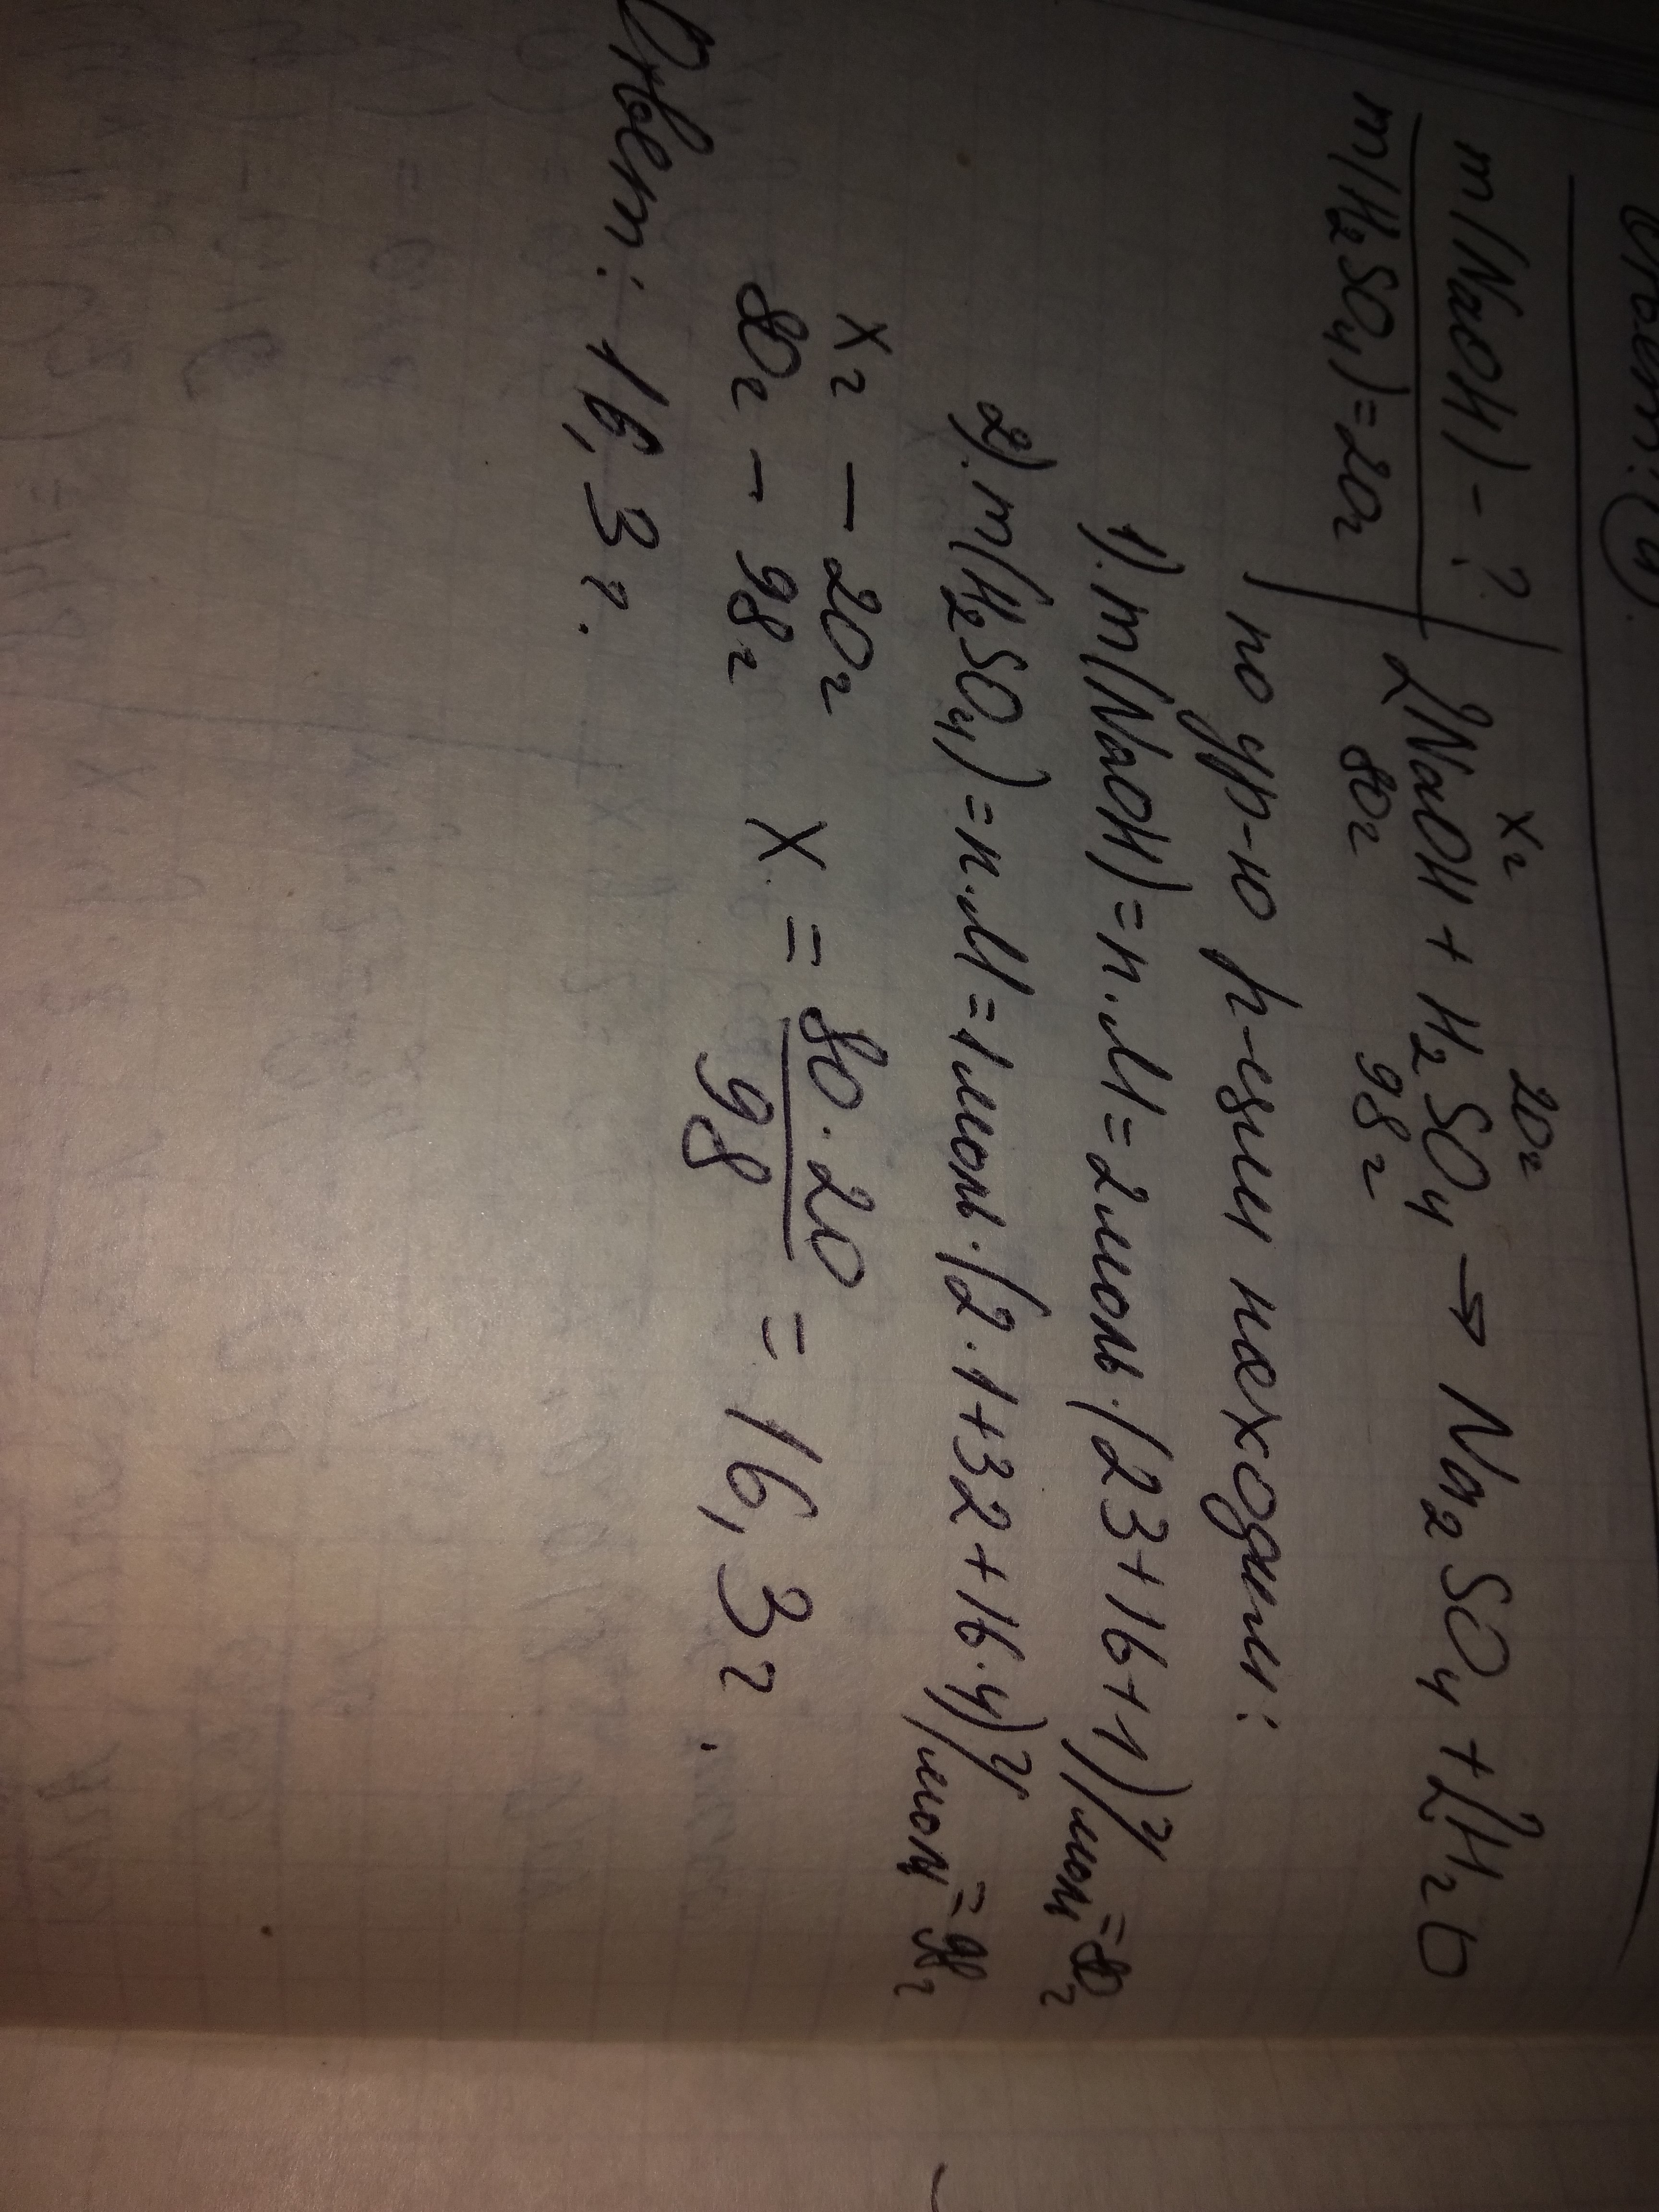 Ответ: 4).
m(NaOH) - ?
m(H₂SO₄) = 20г
xг 20г
2NaOH + H₂SO₄ → Na₂SO₄ + 2H₂O
80г 98г
по ур-ю р-ции находим:
1). m(NaOH) = n·M = 2моль·(23+16+1)г/моль = 80г
2). m(H₂SO₄) = n·M = 1моль·(2·1+32+16·4)г/моль = 98г
xг - 20г
80г - 98г
x = 80·20 / 98 = 16,3г.
Ответ: 16,3г.